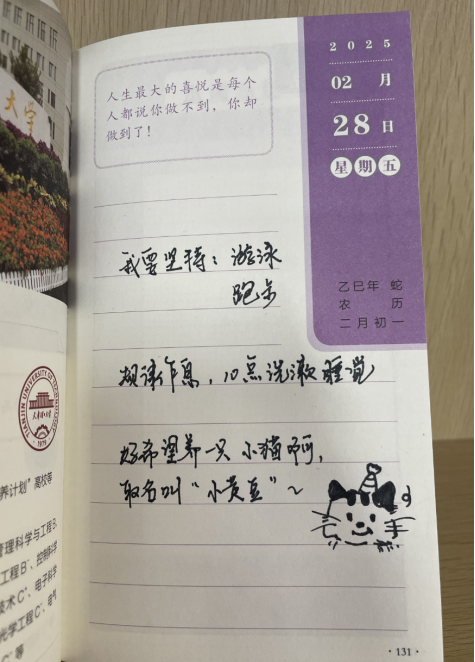 2025
02 月
28 日
星期五
人生最大的喜悦是每个
人都说你做不到，你却
做到了！
乙巳年 蛇
农 历
二月初一
我要坚持：游泳
跑步
规律作息，10点洗漱睡觉
好希望养一只小猫啊，
取名叫“小黄豆”~
大学
TIANJIN UNIVERSITY OF TECHNOLOGY
1979
养计划”高校等
管理科学与工程B、
工程B-、控制科学
技术C+、电子科学
光学工程C-、电气
C-等
·131·